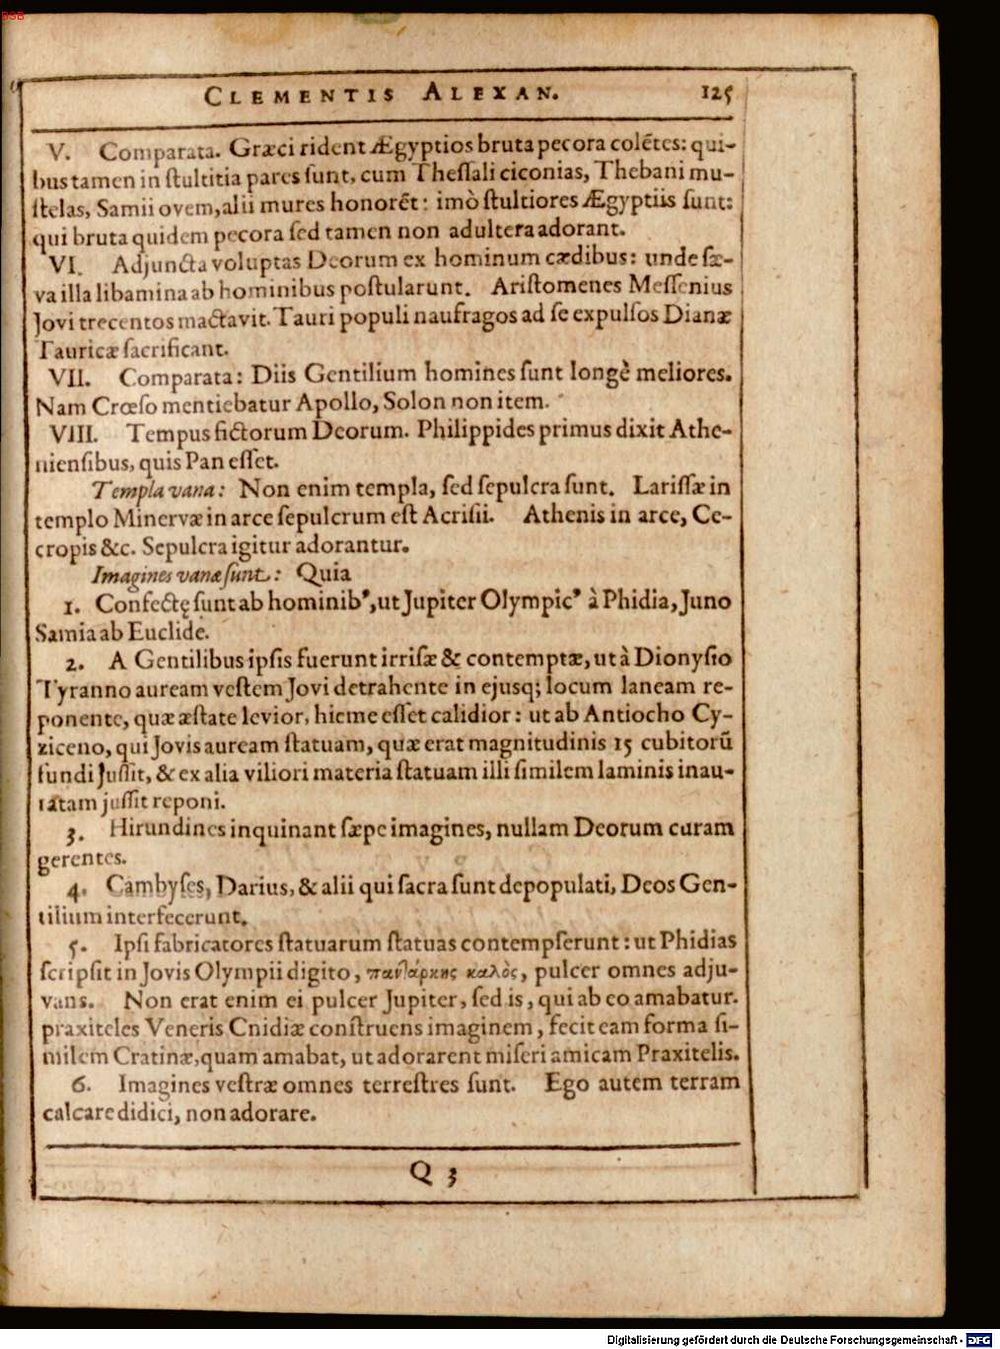 BSB
CLEMENTIS ALEXAN. 125
V. Comparata. Græci rident Ægyptios bruta pecora colẽtes: qui-
bus tamen in ſtultitia pares ſunt, cum Theſſali ciconias, Thebani mu-
ſtelas, Samii ovem, alii mures honorẽt: imò ſtultiores Ægyptiis ſunt:
qui bruta quidem pecora ſed tamen non adultera adorant.
VI. Adjuncta voluptas Deorum ex hominum cædibus: unde ſæ-
va illa libamina ab hominibus poſtularunt. Ariſtomenes Meſſenius
Jovi trecentos mactavit. Tauri populi naufragos ad ſe expulſos Dianæ
Tauricæ ſacrificant.
VII. Comparata: Diis Gentilium homines ſunt longè meliores.
Nam Crœſo mentiebatur Apollo, Solon non item.
VIII. Tempus fictorum Deorum. Philippides primus dixit Athe-
nienſibus, quis Pan eſſet.
Templa vana: Non enim templa, ſed ſepulcra ſunt. Lariſſæ in
templo Minervæ in arce ſepulcrum eſt Acriſii. Athenis in arce, Ce-
cropis &c. Sepulcra igitur adorantur.
Imagines vanæ ſunt: Quia
1. Confectę ſunt ab hominibꝰ, ut Jupiter Olympicꝰ à Phidia, Juno
Samia ab Euclide.
2. A Gentilibus ipſis fuerunt irriſæ & contemptæ, ut à Dionyſio
Tyranno auream veſtem Jovi detrahente in ejusq; locum laneam re-
ponente, quæ æſtate levior, hieme eſſet calidior: ut ab Antiocho Cy-
ziceno, qui Jovis auream ſtatuam, quæ erat magnitudinis 15 cubitorũ
fundi Juſſit, & ex alia viliori materia ſtatuam illi ſimilem laminis inau-
ratam juſſit reponi.
3. Hirundines inquinant ſæpe imagines, nullam Deorum curam
gerentes.
4. Cambyſes, Darius, & alii qui ſacra ſunt depopulati, Deos Gen-
tilium interfecerunt.
5. Ipſi fabricatores ſtatuarum ſtatuas contempſerunt: ut Phidias
ſcripſit in Jovis Olympii digito, πανλάρκης καλὸς, pulcer omnes adju-
vans. Non erat enim ei pulcer Jupiter, ſed is, qui ab eo amabatur.
praxiteles Veneris Cnidiæ conſtruens imaginem, fecit eam forma ſi-
milem Cratinæ, quam amabat, ut adorarent miſeri amicam Praxitelis.
6. Imagines veſtræ omnes terreſtres ſunt. Ego autem terram
calcare didici, non adorare.
Q 3
Digitalisierung gefördert durch die Deutsche Forschungsgemeinschaft - DFG